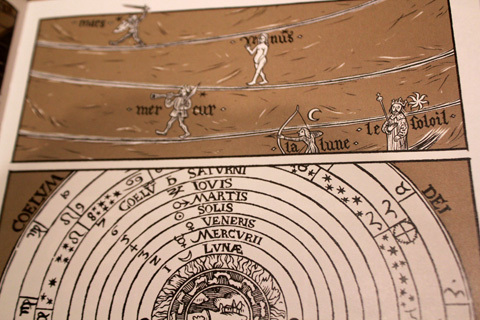 mars
venus
mercur
la lune
le soloil
COELVM
DEI
COELV
SATVRNI
IOVIS
MARTIS
SOLIS
VENERIS
MERCVRII
LVNÆ